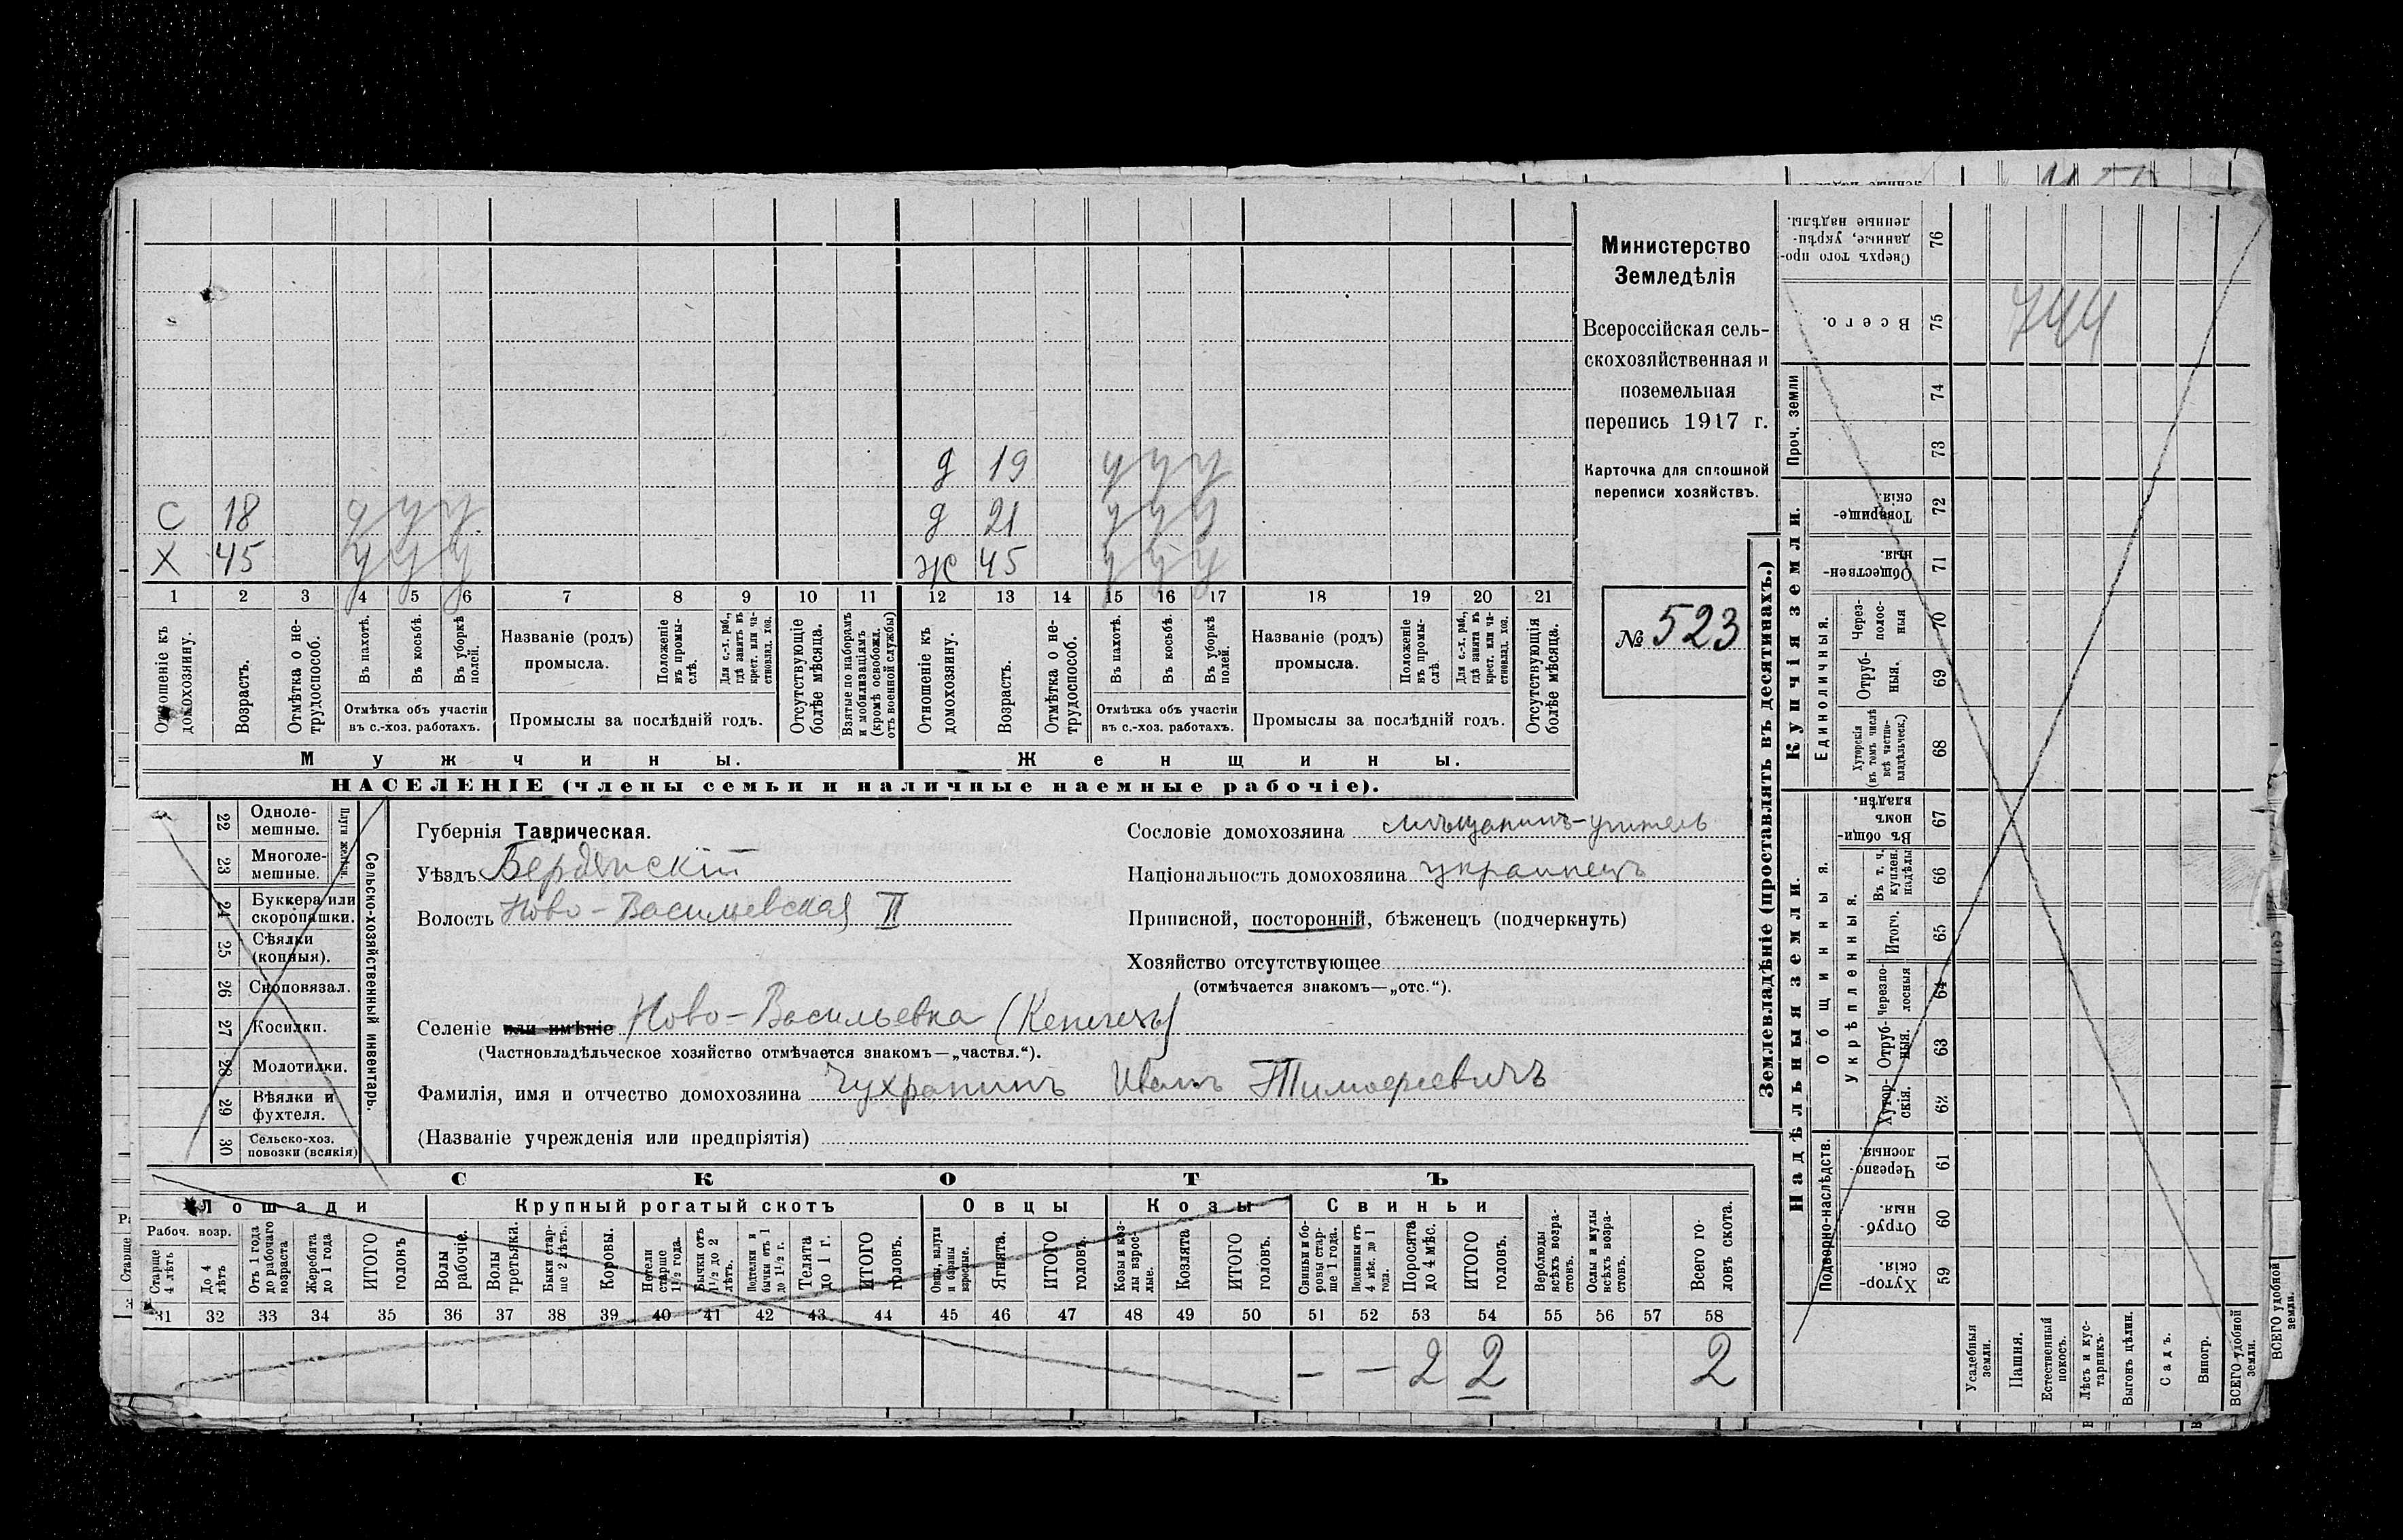 Министерство
Земледѣлія
Всероссійская сель-
скохозяйственная и
поземельная
перепись 1917 г.
Карточка для сплошной
переписи хозяйствъ.
№ 523
д 19 у у у
С 18 у у у
д 21 у у у
Х 45 у у у
ж 45 у у у
1 2 3 4 5 6 7 8 9 10 11 12 13 14 15 16 17 18 19 20 21
Отношеніе къ домохозяину.
Возрастъ.
Отмѣтка о не-трудоспособ.
Въ пахотѣ.
Въ косьбѣ.
Въ уборкѣ полей.
Отмѣтка объ участіи
въ с.-хоз. работахъ.
Названіе (родъ)
промысла.
Положеніе въ промы-слѣ.
Для с.-х. раб., гдѣ занятъ въ крест. или ча-стновлад. хоз.
Промыслы за послѣдній годъ.
Отсутствующіе болѣе мѣсяца.
Взятые по наборамъ и мобилизаціямъ (кромѣ освобожд. отъ военной службы)
Отношеніе къ домохозяину.
Возрастъ.
Отмѣтка о не-трудоспособ.
Въ пахотѣ.
Въ косьбѣ.
Въ уборкѣ полей.
Отмѣтка объ участіи
въ с.-хоз. работахъ.
Названіе (родъ)
промысла.
Положеніе въ промы-слѣ.
Для с.-х. раб., гдѣ занята въ крест. или ча-стновлад. хоз.
Промыслы за послѣдній годъ.
Отсутствующія болѣе мѣсяца.
Мужчины. Женщины.
НАСЕЛЕНІЕ (члены семьи и наличные наемные рабочіе).
22 Одноле-мешные.
23 Многоле-мешные.
Плуги желѣзн.
24 Буккера или скоропашки.
25 Сѣялки (конныя).
26 Сноповязал.
27 Косилки.
28 Молотилки.
29 Вѣялки и фухтеля.
30 Сельско-хоз. повозки (всякія)
Сельско-хозяйственный инвентарь.
Губернія Таврическая.
Уѣздъ Бердянскій
Волость Ново-Васильевская II
Сословіе домохозяина мѣщанинъ-учитель
Національность домохозяина украинецъ
Приписной, посторонній, бѣженецъ (подчеркнуть)
Хозяйство отсутствующее
(отмѣчается знакомъ—„отс.“).
Селеніе или имѣніе Ново-Васильевка
(Частновладѣльческое хозяйство отмѣчается знакомъ—„частвл.“).
Фамилія, имя и отчество домохозяина Чухранинъ Иванъ Тимофеевичъ
(Названіе учрежденія или предпріятія)
СКОТЪ
Лошади Крупный рогатый скотъ Овцы Козы Свиньи
Рабоч. возр.
Старше 4 лѣтъ
До 4 лѣтъ
Отъ 1 года до рабочаго возраста
Жеребята до 1 года
ИТОГО головъ
Волы рабочіе.
Волы третьяки.
Быки стар-ше 2 лѣтъ.
Коровы.
Нетели старше 1½ года.
Бычки отъ 1½ до 2 лѣтъ.
Подтелки и бычки отъ 1 до 1½ г.
Телята до 1 г.
ИТОГО головъ.
Овцы, валухи и бараны взрослые.
Ягнята.
ИТОГО головъ.
Козы и коз-лы взрос-лые.
Козлята
ИТОГО головъ.
Свиньи и бо-ровы стар-ше 1 года.
Подсвинки отъ 4 мѣс. до 1 года.
Поросята до 4 мѣс.
ИТОГО головъ.
Верблюды всѣхъ возра-стовъ.
Ослы и мулы всѣхъ возра-стовъ.
Всего го-ловъ скота.
31 32 33 34 35 36 37 38 39 40 41 42 43 44 45 46 47 48 49 50 51 52 53 54 55 56 57 58
— — 2 2 2
Землевладѣніе (проставлять въ десятинахъ.)
Сверхъ того про-данные, укрѣп-ленные надѣлы. 76
Всего. 75
744
Проч. земли 74 73
Купчія земли.
Товарище-скія. 72
Обществен-ныя. 71
Единоличныя.
Через-полос-ныя 70
Отруб-ныя. 69
Хуторскія (въ томъ числѣ всѣ частно-владѣльческ.) 68
Надѣльныя земли.
Общинныя.
Въ общи-номъ владѣн. 67
Укрѣпленныя.
Въ т. ч. куплен. надѣлы 66
Итого. 65
Черезпо-лосныя 64
Отруб-ныя. 63
Хутор-скія. 62
Подворно-наслѣдств.
Черезпо-лосныя. 61
Отруб-ныя. 60
Хутор-скія. 59
Усадебныя земли.
Пашня.
Естественный покосъ.
Лѣсъ и кус-тарникъ.
Выгонъ цѣлин.
Садъ.
Виногр.
ВСЕГО удобной земли.
ВСЕГО удобной земли.
Старше